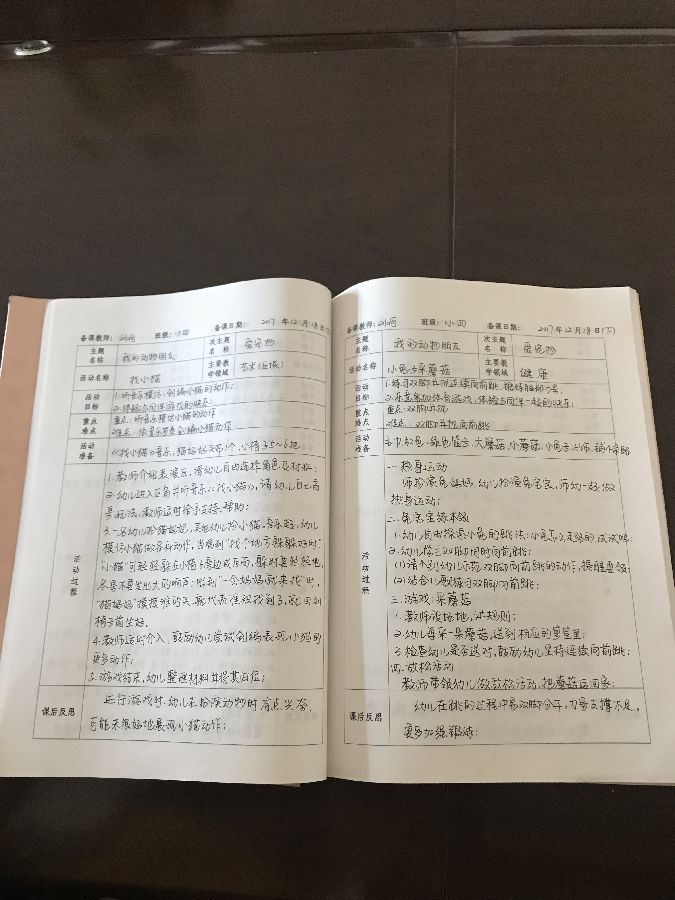 备课教师: 班级:小四 备课日期: 2017 年12月18日
主题名称 我的动物朋友 次主题名称 爱宠物
活动名称 找小猫 主要教学领域 艺术(区域)
活动目标 1.听音乐模仿、创编小猫的动作;
2.体验与同伴游戏的快乐;
重点 难点 重点:听音乐模仿小猫的动作
难点:按音乐节奏创编小猫动作
活动准备 《找小猫》音乐,猫妈妈头饰1个,小猫
活动过程
1.教师介绍表演区,请幼儿自由选择角色及材料;
2.幼儿进入区角并听音乐《找小猫》,请幼儿自己商
量玩法,教师适时给予支持、帮助;
3.一名幼儿扮猫妈妈,其他幼儿扮小猫,音乐起,幼儿
模仿小猫做各种动作,当唱到"找个地方躲躲好"时,
"小猫"可轻轻躲在小椅子旁边或后面,躲时要轻轻地,
尽量不要发出大的响声;唱到"一会妈妈就来找"时,
"猫妈妈"摸摸谁的头,就代表谁被找到了,就回到
椅子前坐好.
4.教师适时介入,鼓励幼儿尝试创编表现小猫的
更多动作;
5.游戏结束,幼儿整理材料并将其归位;
课后反思 进行游戏时,幼儿在扮演动物时有点兴奋,
可能未很好地表现小猫动作;
备课教师: 班级:小四 备课日期: 2017 年12月18日(下)
主题名称 我的动物朋友 次主题名称 爱宠物
活动名称 小兔子采蘑菇 主要教学领域 健康
活动目标 1.练习双脚并拢连续向前跳,
2.乐意参加体育游戏,体验与同伴一起的快乐;
重点 难点 重点:双脚并拢
难点:双脚并拢向前跳
活动准备 红、绿色筐子、大蘑菇、小蘑菇、小兔子头饰,
活动过程
一.热身运动
师扮演兔妈妈,幼儿扮演兔宝宝,师幼一起做
热身运动;
二.兔宝宝练本领
1.幼儿自由探索小兔的跳法:小兔怎么走路的,试试吧;
2.幼儿练习双脚同时向前跳:
(1)请个别幼儿示范双脚向前跳的动作,提醒要领;
(2)结合儿歌练习双脚向前跳;
三.游戏:采蘑菇
1.教师设场地,讲规则:
2.幼儿每采一朵蘑菇,送到相应的筐筐里;
3.检查幼儿是否送对,鼓励幼儿坚持连续向前跳;
四.放松活动
教师带领幼儿做放松活动,把蘑菇运回家;
课后反思 幼儿在跳的过程中易双脚分开,力量支撑不足,
要多加强锻炼;